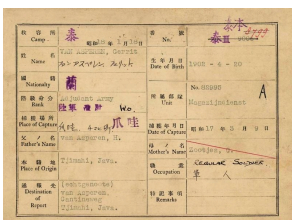 收容所 Camp 泰
番號 No. 泰Ⅲ
姓名 Name VAN ASPEREN, Gerrit
生年月日 Date of Birth 1908 - 4 - 20
國籍 Nationality 蘭
所屬部隊 Unit No. 93990
Magazijndienst
A
階級身分 Rank Adjudant Army
陸軍准尉 W.O.
捕獲場所 Place of Capture 爪哇
捕獲年月日 Date of Capture 昭和17年3月9日
父ノ名 Father's Name van Asperen, H.
母ノ名 Mother's Name
本籍地 Place of Origin Tjimahi, Java.
職業 Occupation REGULAR SOLDIER.
軍人
通報先 Destination of Report (echtgenote)
van Asperen
Tjimahi, Java.
特記事項 Remarks